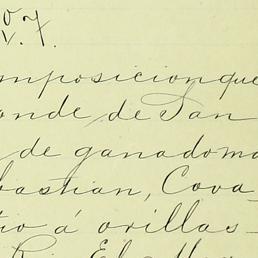 07
V. 7.
mposicion que
onde de San
de ganado ma
bastian, Cova
tio á orillas